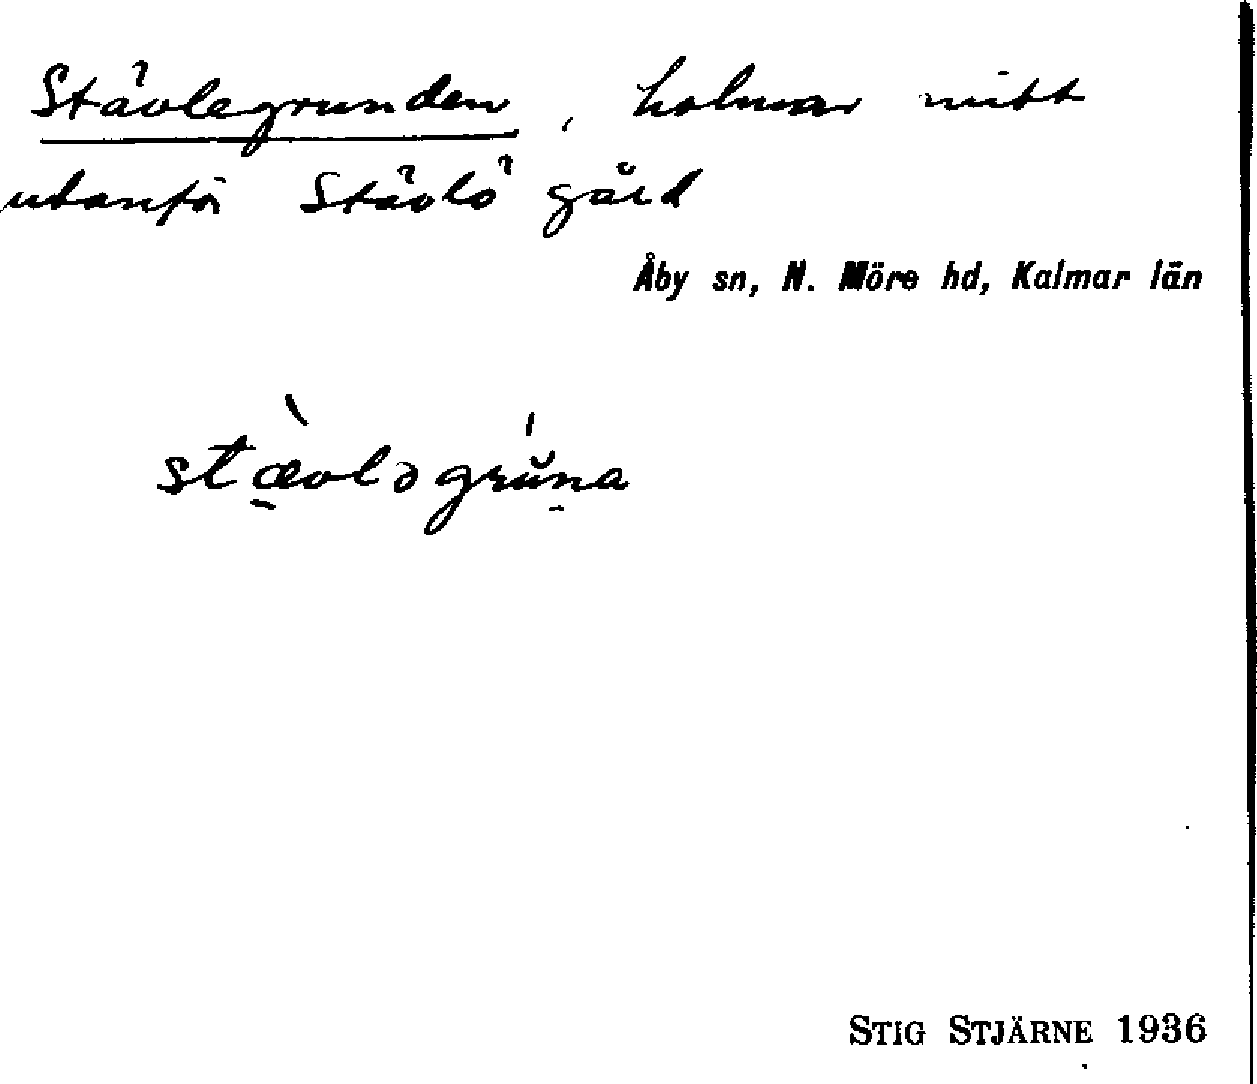 Stävlegrunden, holmar mitt
utanför Stävlö gård
Åby sn, N. Möre hd, Kalmar län
stæ̀vləgrŭ́na
STIG STJÄRNE 1936